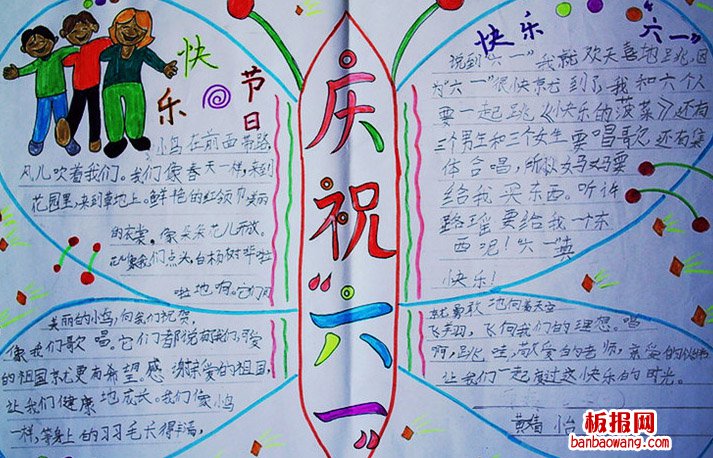 快乐
节日
小鸟在前面带路,
风儿吹着我们。我们像春天一样,来到
花园里,来到草地上。鲜艳的红领巾,美丽
的衣裳,像朵朵花儿开放。
我们点头,白杨树哗啦
啦地响。它们用
美丽的小鸟,向我们祝贺,
像我们歌唱。它们都说我们可爱
的祖国更有希望。感谢亲爱的祖国,
让我们健康地成长。我们像小鸟
一样,等身上的羽毛长得丰满,
庆祝“六一”
快乐“六一”
说到“六一”我就欢天喜地地跳,因
为“六一”很快就到了,我和六个人
要一起跳《快乐的菠菜》还有
三个男生和三个女生要唱歌,还有集
体合唱,所以妈妈要
给我买东西。听许
路瑶要给我一个东
西呢!“六一”真
快乐!
就勇敢地向着天空
飞翔,飞向我们的理想。唱
啊,跳,敬爱的老师,亲爱的伙伴
让我们一起度过这快乐的时光。
黄 怡
板报网
banbaowang.com